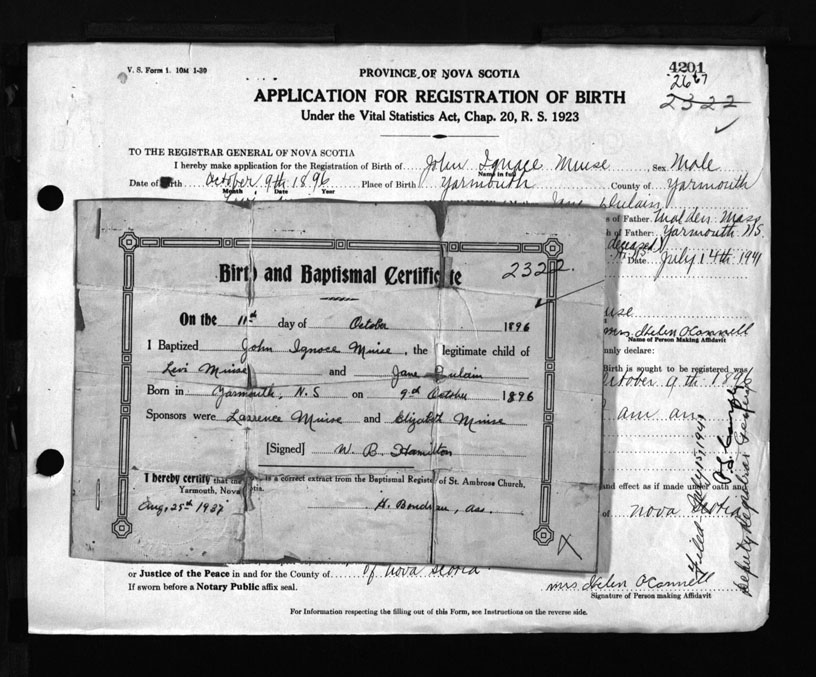 V. S. Form 1. 10M 1-30
4201
PROVINCE OF NOVA SCOTIA
2667
APPLICATION FOR REGISTRATION OF BIRTH
2322
Under the Vital Statistics Act, Chap. 20, R. S. 1923
TO THE REGISTRAR GENERAL OF NOVA SCOTIA
I hereby make application for the Registration of Birth of John Ignace Muise Sex Male
Name in full
Date of Birth October 9th 1896 Place of Birth Yarmouth County of Yarmouth
Month Date Year
of Father Malden Mass
of Father: Yarmouth N.S.
deceased
Date July 14th 1941
Birth and Baptismal Certificate 2322.
On the 11th day of October 1896
I Baptized John Ignace Muise, the legitimate child of
Levi Muise and Jane
Born in Yarmouth, N.S on 9th October 1896
Sponsors were Lawrence Muise and Elizabeth Muise
[Signed] W. B. Hamilton
I hereby certify that the is a correct extract from the Baptismal Register of St. Ambrose Church,
Yarmouth, Nova
Aug. 25th 1937 H. Boudreau, Ass.
Mrs Helen O'Connell
Name of Person Making Affidavit
declare:
Birth is sought to be registered was
October 9th 1896
I am an
and effect as if made under oath and
of Nova Scotia
Filed July 15, 1941
Deputy Registrar General
or Justice of the Peace in and for the County of of Nova Scotia
If sworn before a Notary Public affix seal.
Mrs Helen O'Connell
Signature of Person making Affidavit
For Information respecting the filling out of this Form, see Instructions on the reverse side.